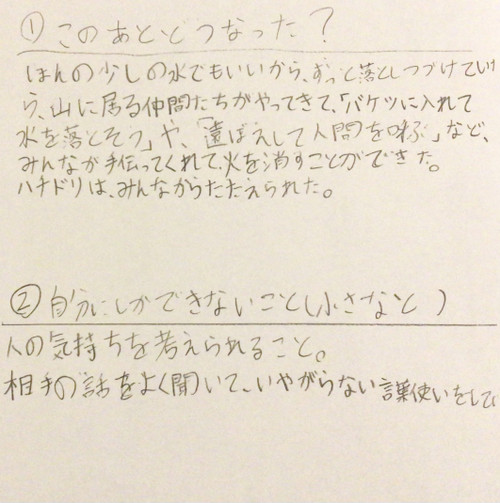 ①このあとどうなった？
ほんの少しの水でもいいから、ずっと落としつづけてい
ら、山に居る仲間たちがやってきて、「バケツに入れて
水を落とそう」や、「遠ぼえして人間を呼ぶ」など、
みんなが手伝ってくれて、火を消すことができた。
ハチドリは、みんなからたたえられた。
②自分にしかできないこと(小さなこと)
人の気持ちを考えられること。
相手の話をよく聞いて、いやがらない言葉使いをして